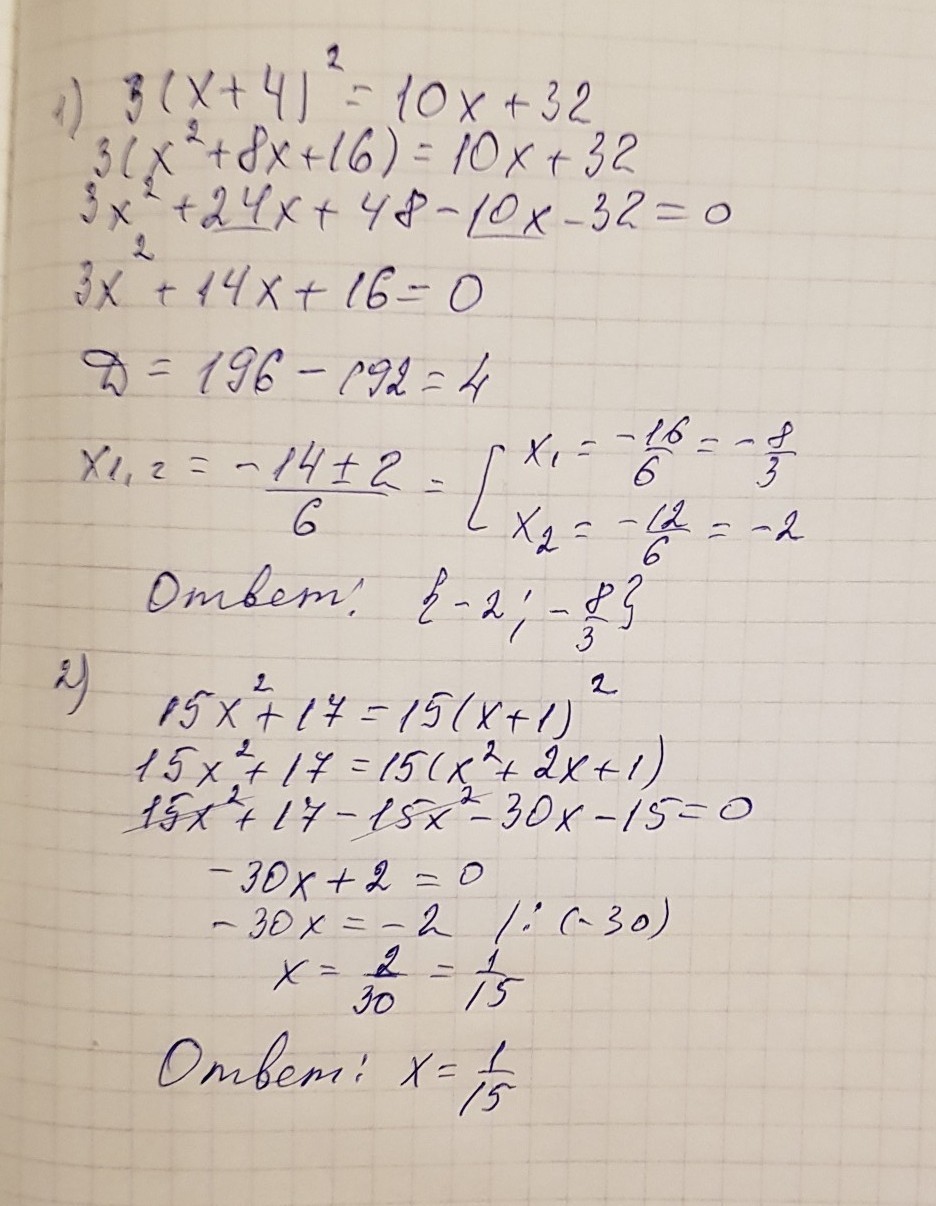 1) 3(x+4)² = 10x + 32
3(x²+8x+16) = 10x + 32
3x² + 24x + 48 - 10x - 32 = 0
3x² + 14x + 16 = 0
D = 196 - 192 = 4
x₁,₂ = (-14 ± 2)/6 = [ x₁ = -16/6 = -8/3
x₂ = -12/6 = -2
Ответ: {-2; -8/3}
2)
15x² + 17 = 15(x+1)²
15x² + 17 = 15(x² + 2x + 1)
15x² + 17 - 15x² - 30x - 15 = 0
-30x + 2 = 0
-30x = -2 /: (-30)
x = 2/30 = 1/15
Ответ: x = 1/15